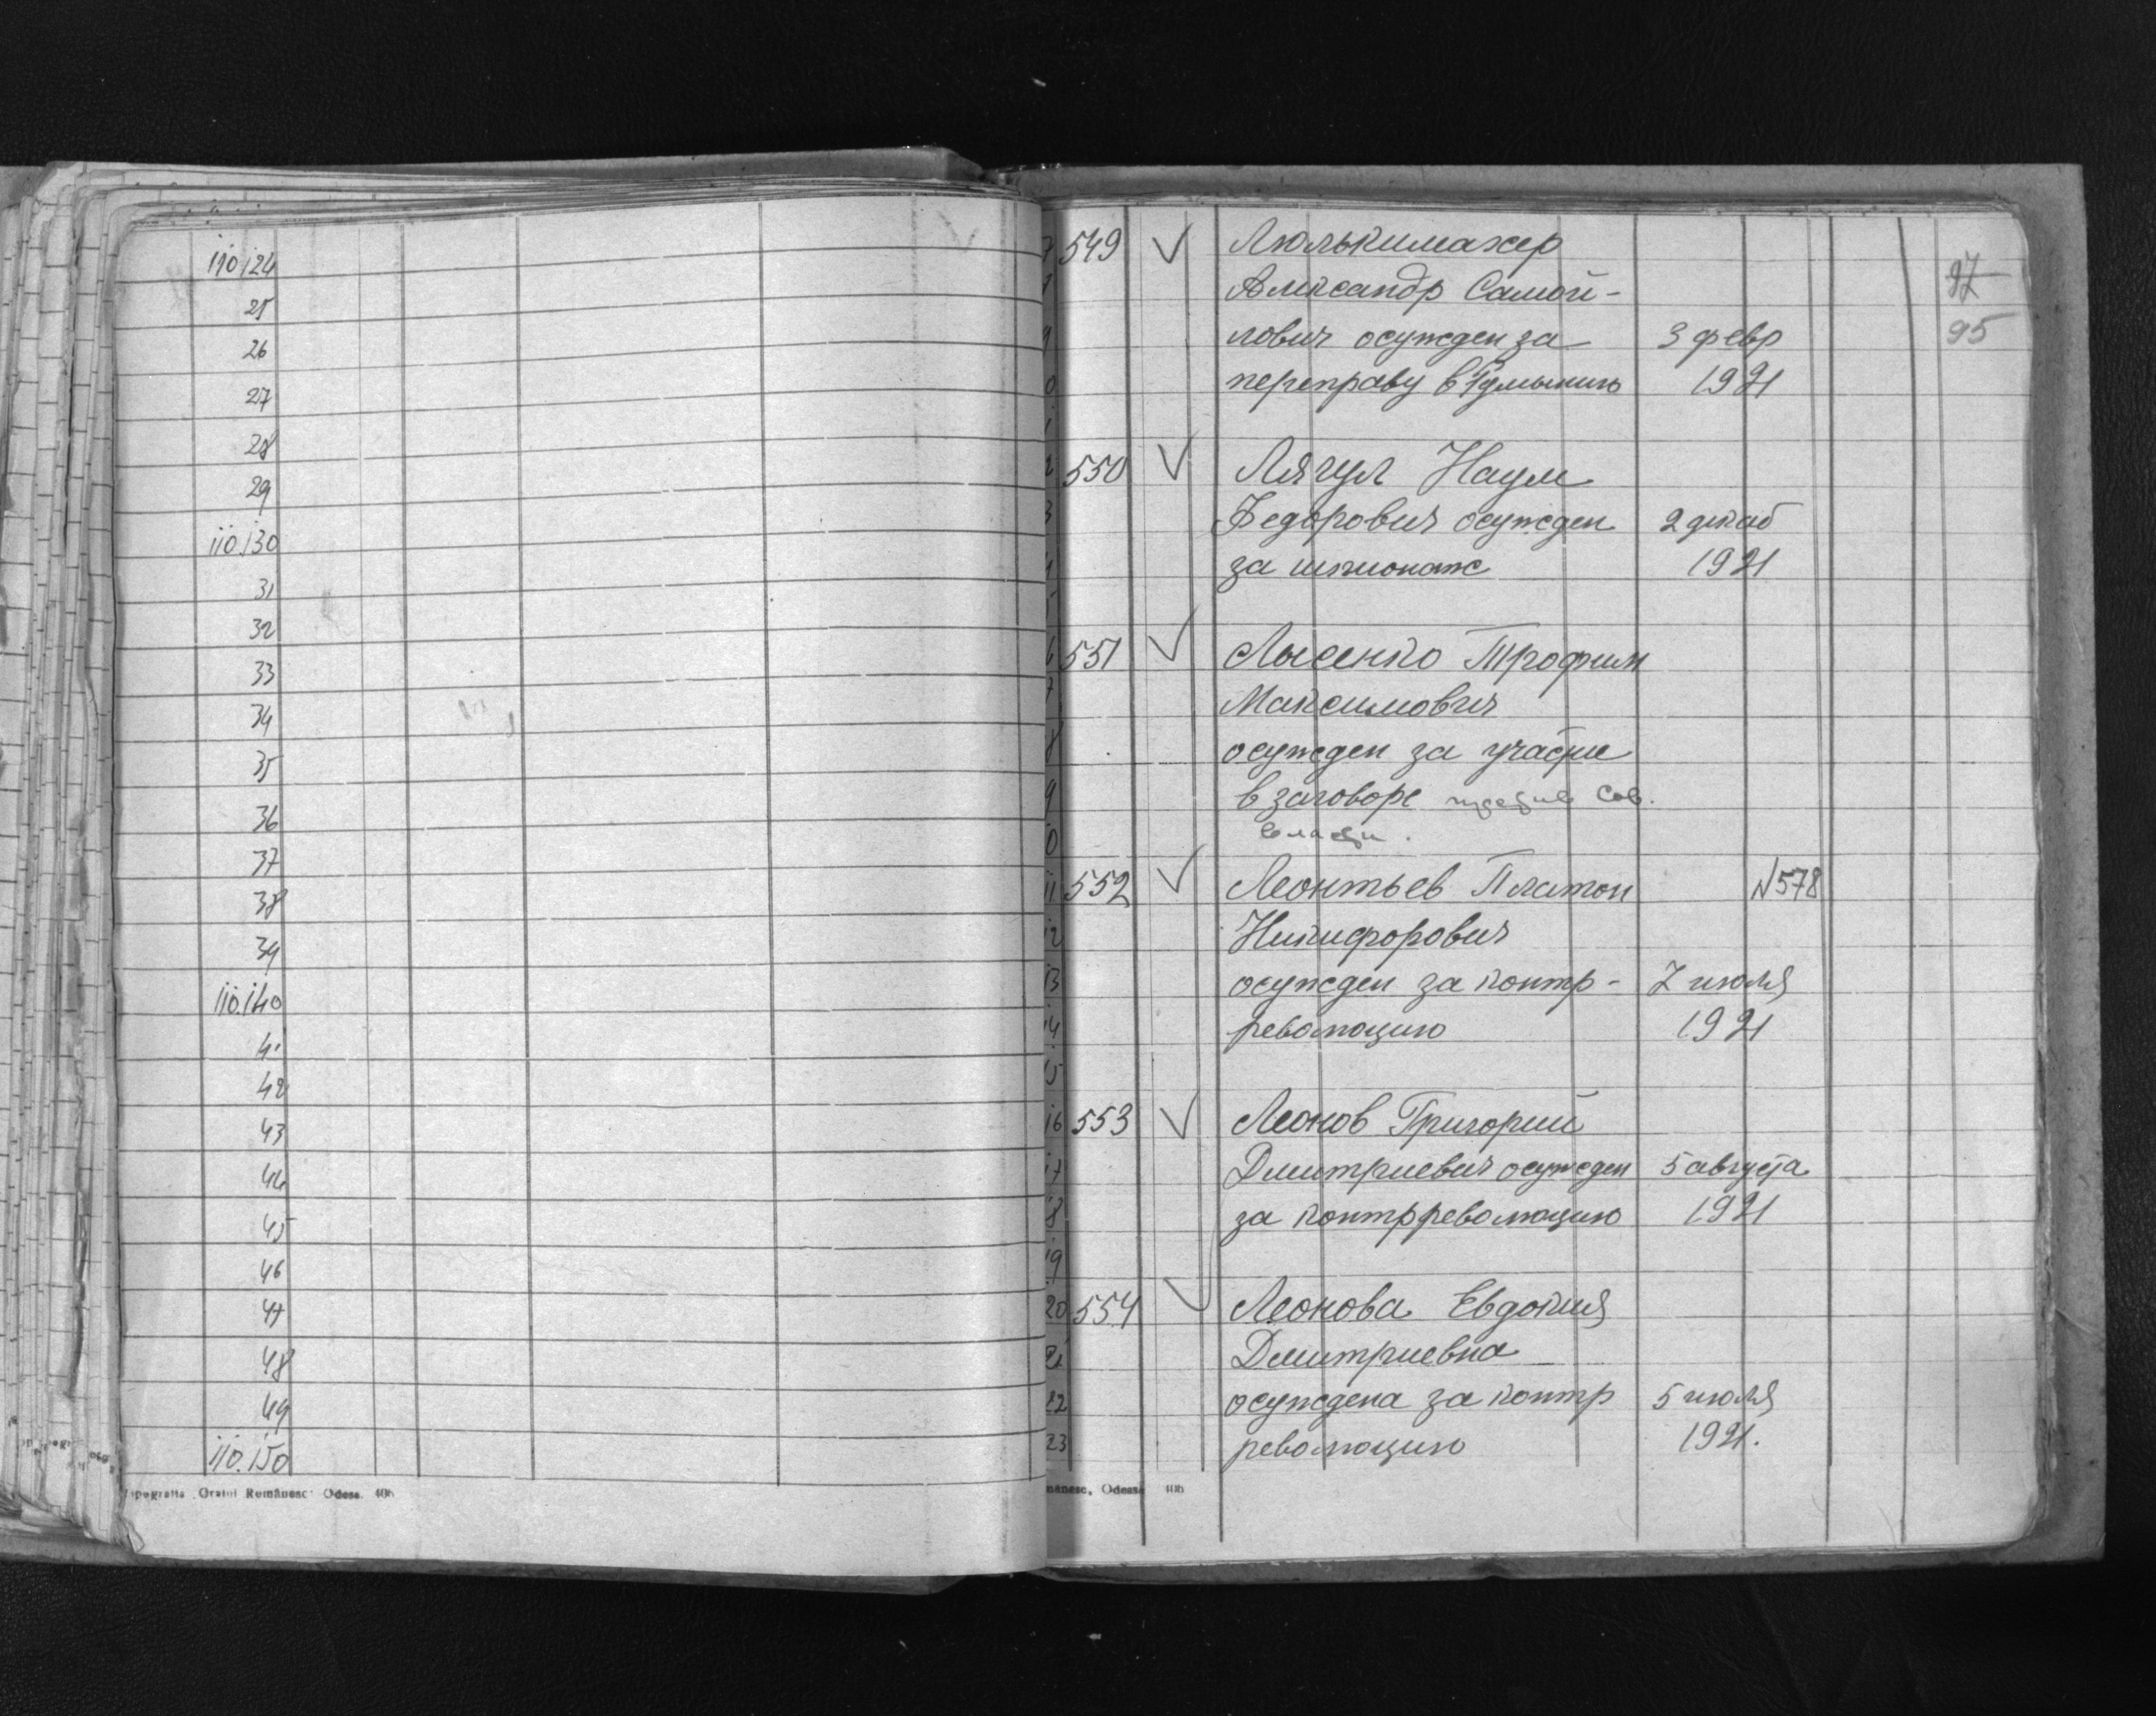 110124
25
26
27
28
29
110.130
31
32
33
34
35
36
37
38
39
110.140
41
42
43
44
45
46
47
48
49
110.150
Tipografia „Graiul Românesc" Odesa. 406
97
95
549 ✓ Люлькимахер
Александр Самой-
лович осужден за 3 февр
переправу в Румынию 1921
550 ✓ Лягул Наум
Федорович осужден 2 декаб
за шпионаж 1921
551 ✓ Лысенко Трофим
Максимович
осужден за участие
в заговоре против Сов.
власти.
552 ✓ Леонтьев Платон №578
Никифорович
осужден за контр- 7 июля
революцию 1921
553 ✓ Леонов Григорий
Дмитриевич осужден 5 августа
за контрреволюцию 1921
554 ✓ Леонова Евдокия
Дмитриевна
осуждена за контр 5 июля
революцию 1921.
mânesc, Odessa 40b